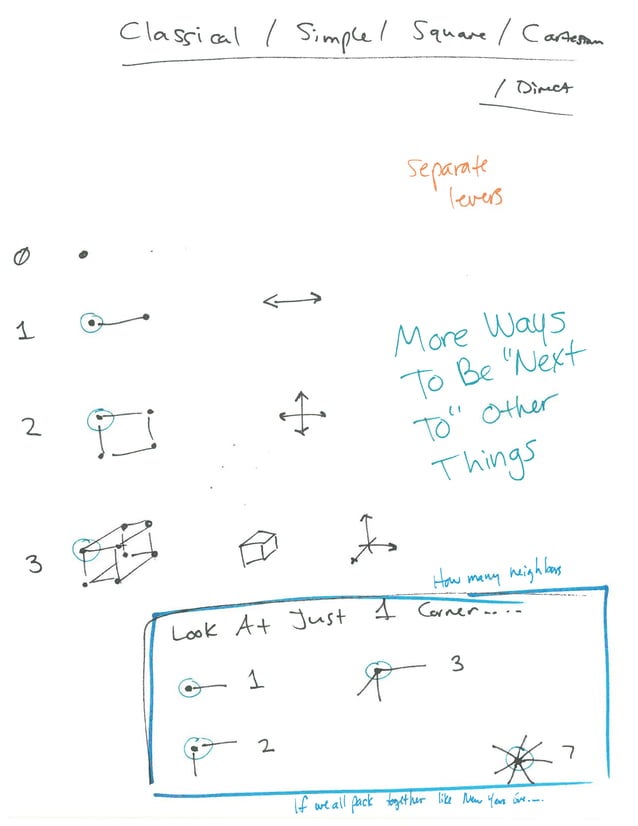 Classical / Simple / Square / Cartesian
/ Direct
Separate
levers
0
1
2
3
More Ways
To Be "Next
To" Other
Things
How many neighbors
Look At Just 1 Corner....
1
3
2
7
If we all pack together like New Years Eve....